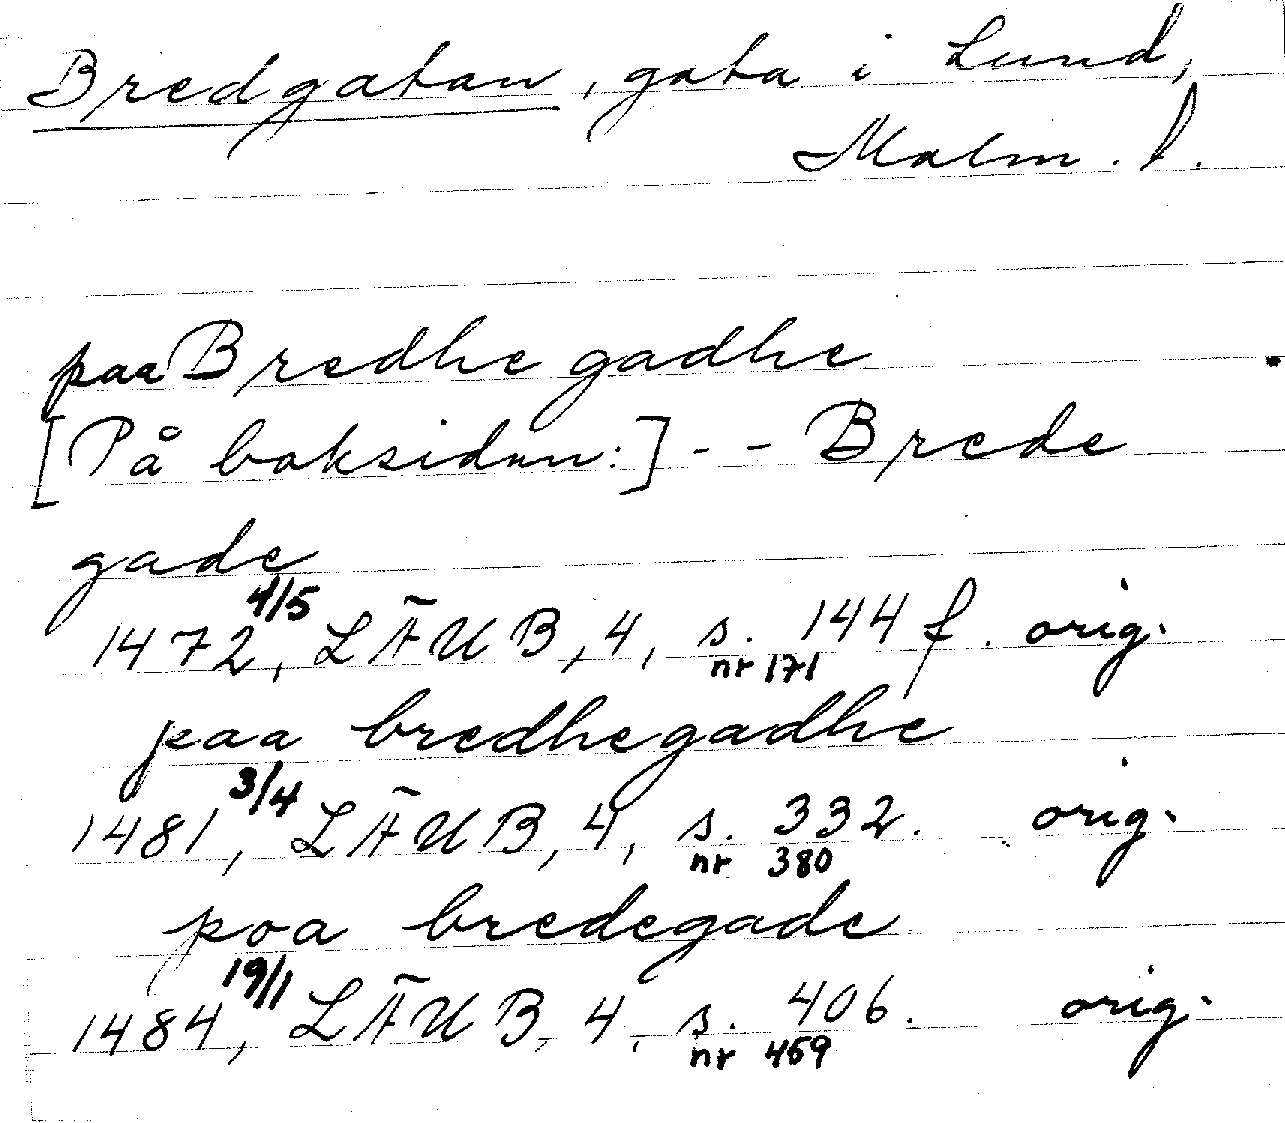 Bredgatan, gata i Lund,
Malm. l.
paa Bredhe gadhe
[På baksidan:] - - Brede
gade
1472 4/5, LÄUB, 4, s. 144 f. orig.
nr 171
paa bredhegadhe
1481 3/4, LÄUB, 4, s. 332. orig.
nr 380
poa bredegade
1484 19/1, LÄUB, 4, s. 406. orig.
nr 459